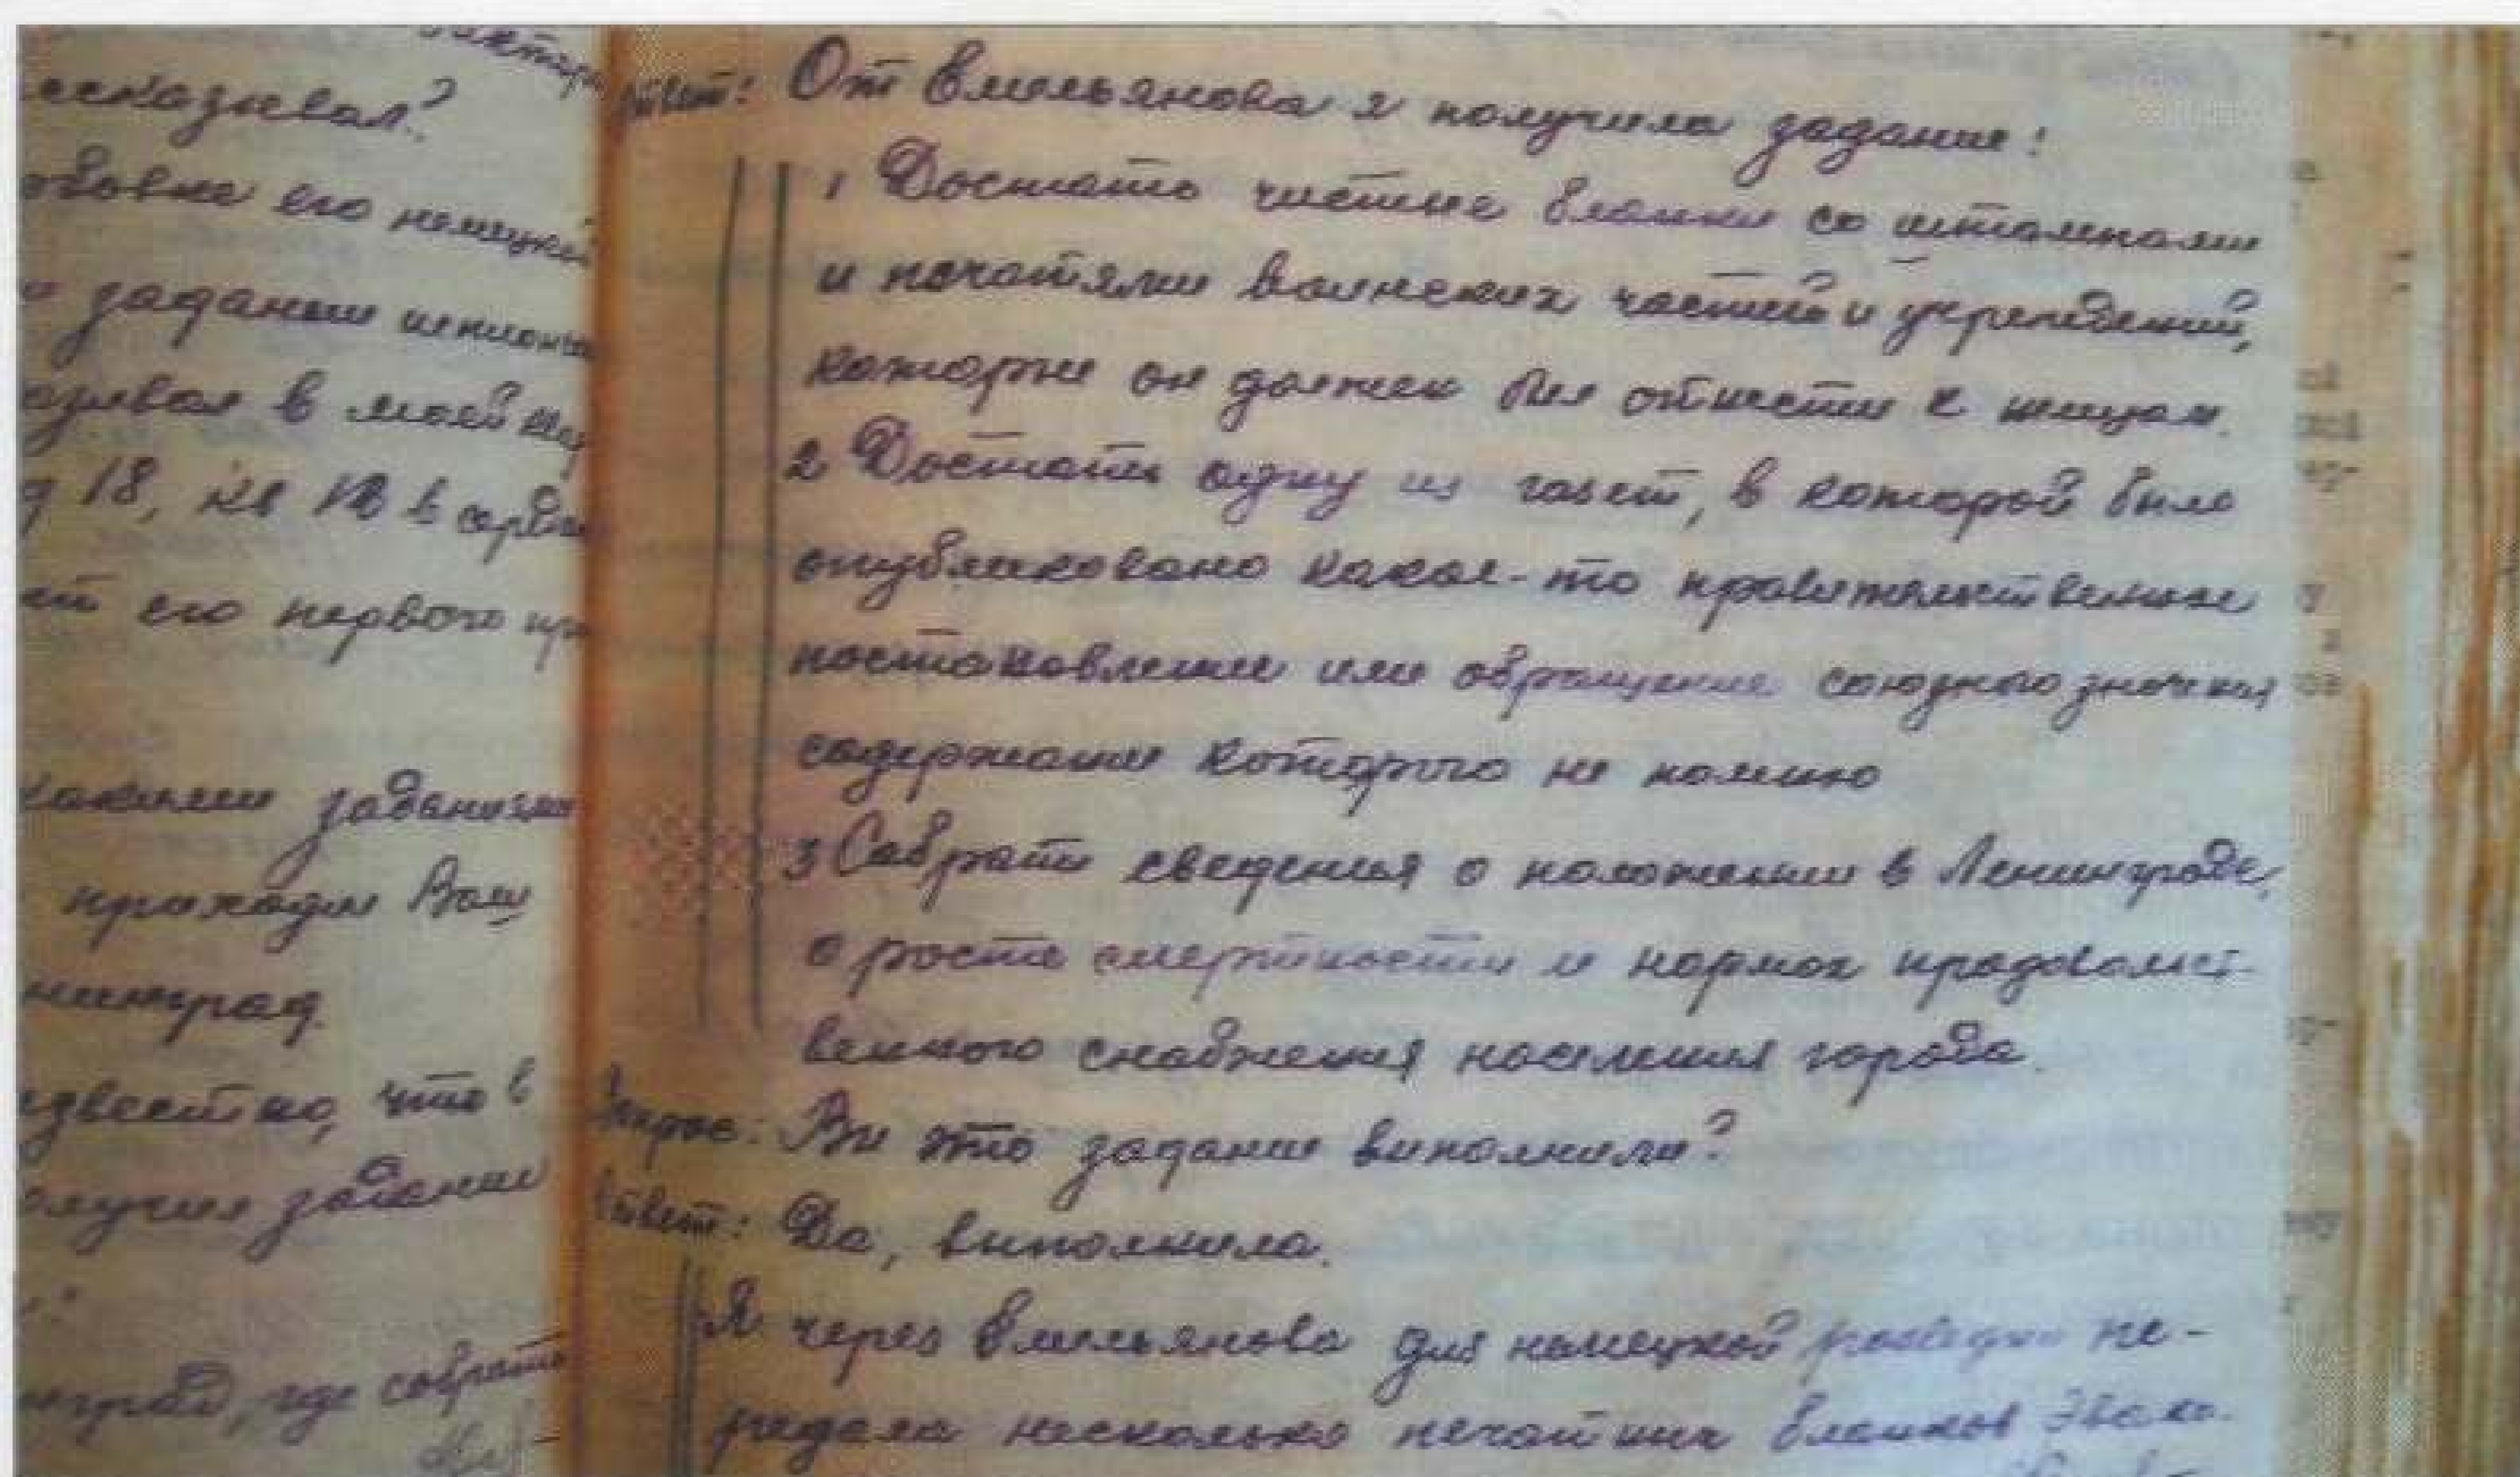 ссказывал?
его немецкой
задании шпионс
в моей
18, кв в
его первого
какими заданиями
приходил Ваш
нинград.
звестно, что в
олучил задание
где собрать
Ответ: От Емельянова я получила задание:
1 Достать чистые бланки со штампами
и печатями воинских частей и учреждений,
которые он должен был отнести к немцам.
2 Достать одну из газет, в которой было
опубликовано какое-то правительственное
постановление или обращение союзного значения
содержание которого не помню
3 Собрать сведения о положении в Ленинграде,
о росте смертности и нормах продовольст-
венного снабжения населения города.
Вопрос: Вы это задание выполнили?
Ответ: Да, выполнила.
Я через Емельянова для немецкой разведки пе-
редала несколько печатных бланков эвако-